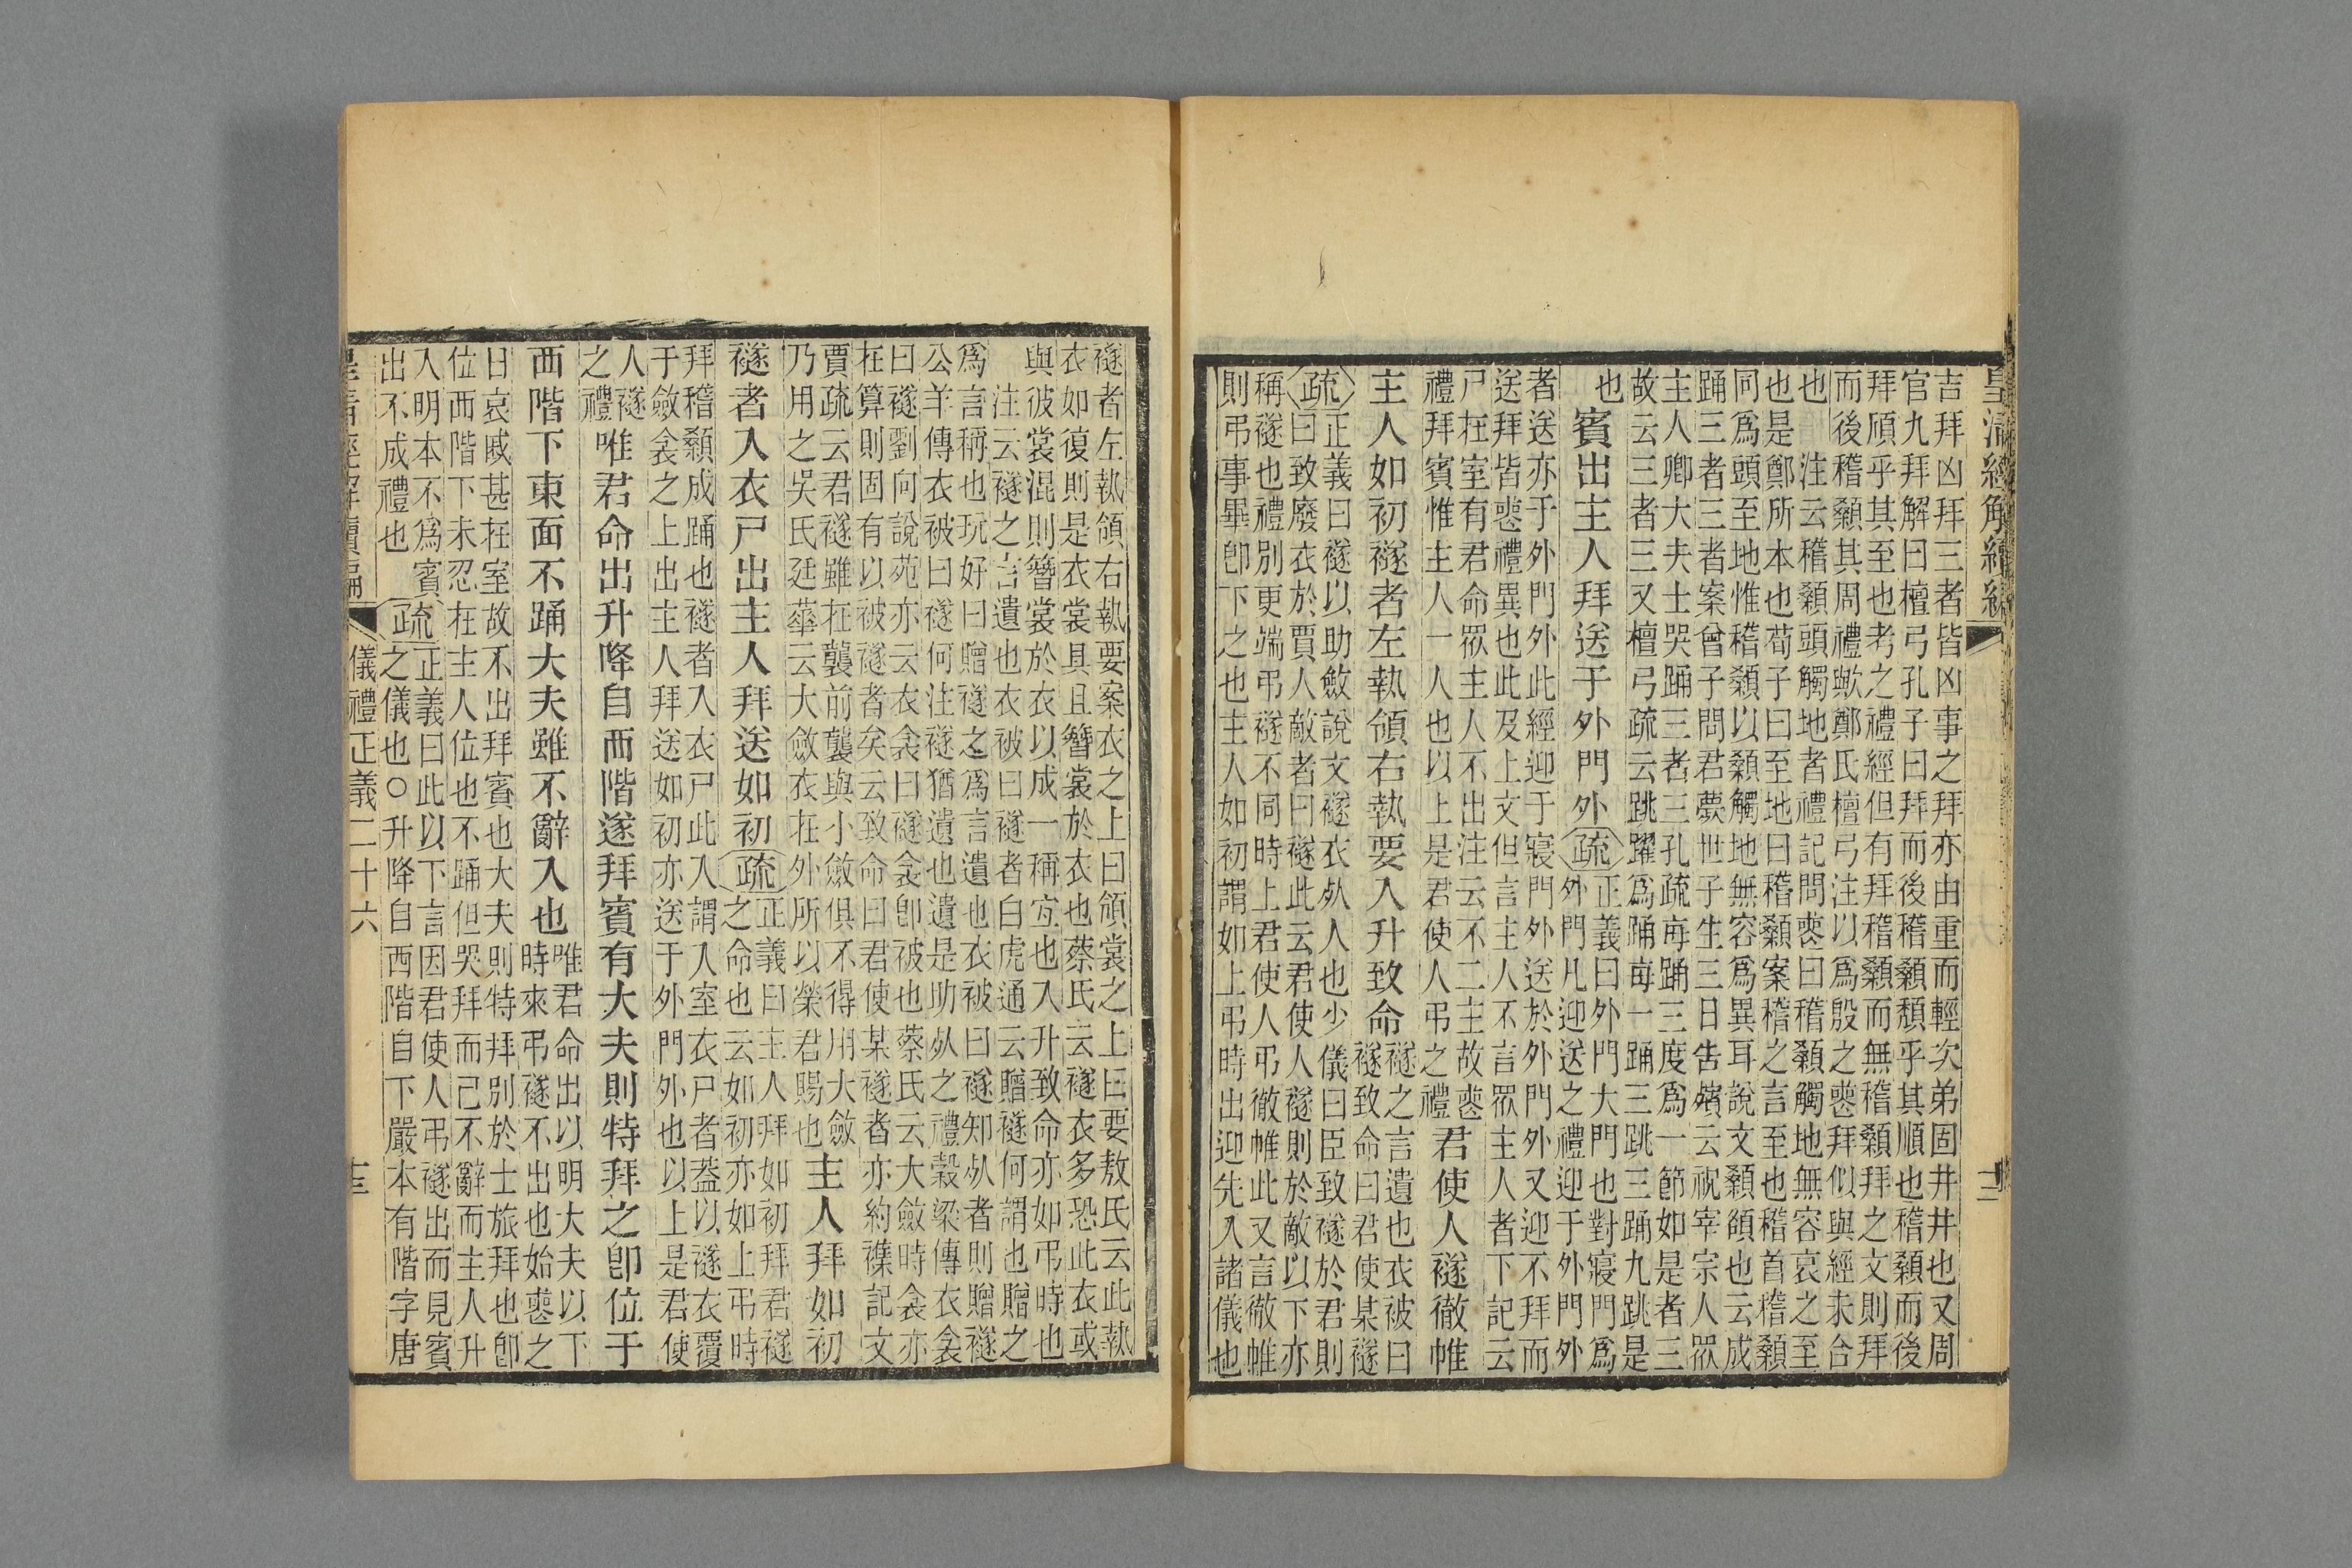 皇清經解續編
吉拜凶拜三者皆凶事之拜亦由重而輕次弟固井井也又周
官九拜解曰檀弓孔子曰拜而後稽顙頹乎其順也稽顙而後
拜頎乎其至也考之禮經但有拜稽顙而無稽顙拜之文則拜
而後稽顙其周禮歟鄭氏檀弓注以爲殷之喪拜似與經未合
也　注云稽顙頭觸地者禮記問喪曰稽顙觸地無容哀之至
也是鄭所本也荀子曰至地曰稽顙案稽之言至也稽首稽顙
同爲頭至地惟稽顙以顙觸地無容爲異耳說文顙頟也云成
踊三者三者案曾子問君薨世子生三日告殯云祝宰宗人眾
主人卿大夫士哭踊三者三孔疏每踊三度爲一節如是者三
故云三者三又檀弓疏云跳躍爲踊每一踊三跳三踊九跳是
也
賓出主人拜送于外門外
疏
正義曰外門大門也對寢門爲
外門凡迎送之禮迎于外門外
者送亦于外門外此經迎于寢門外送於外門外又迎不拜而
送拜皆喪禮異也此及上文但言主人不言眾主人者下記云
尸在室有君命眾主人不出注云不二主故喪
禮拜賓惟主人一人也以上是君使人弔之禮
君使人襚徹帷
主人如初襚者左執領右執要入升致命
襚之言遺也衣被曰
襚致命曰君使某襚
疏
正義曰襚以助斂說文襚衣死人也少儀曰臣致襚於君則
曰致廢衣於賈人敵者曰襚此云君使人襚則於敵以下亦
稱襚也禮別更端弔襚不同時上君使人弔徹帷此又言徹帷
則弔事畢卽下之也主人如初謂如上弔時出迎先入諸儀也
襚者左執領右執要案衣之上曰領裳之上曰要敖氏云此執
衣如復則是衣裳具且簪裳於衣也蔡氏云襚衣多恐此衣或
與彼裳混則簪裳於衣以成一稱宐也入升致命亦如弔時也
注云襚之言遺也衣被曰襚者白虎通云贈襚何謂也贈之
爲言稱也玩好曰贈襚之爲言遺也衣被曰襚知死者則贈襚
公羊傳衣被曰襚何注襚猶遺也遺是助死之禮穀梁傳衣衾
曰襚劉向說苑亦云衣衾曰襚衾卽被也蔡氏云大斂時衾亦
在算則固有以被襚者矣云致命曰君使某襚者亦約襍記文
賈疏云君襚雖在襲前襲與小斂俱不得用大斂
乃用之吳氏廷華云大斂衣在外所以榮君賜也
主人拜如初
襚者入衣尸出主人拜送如初
疏
正義曰主人拜如初拜君襚
之命也云如初亦如上弔時
拜稽顙成踊也襚者入衣尸此入謂入室衣尸者蓋以襚衣覆
于斂衾之上出主人拜送如初亦送于外門外也以上是君使
人襚
之禮
唯君命出升降自西階遂拜賓有大夫則特拜之卽位于
西階下東面不踊大夫雖不辭入也
唯君命出以明大夫以下
時來弔襚不出也始喪之
日哀戚甚在室故不出拜賓也大夫則特拜別於士旅拜也卽
位西階下未忍在主人位也不踊但哭拜而已不辭而主人升
入明本不爲賓
出不成禮也
疏
正義曰此以下言因君使人弔襚出而見賓
之儀也○升降自西階自下嚴本有階字唐
皇清經解續編
儀禮正義二十六